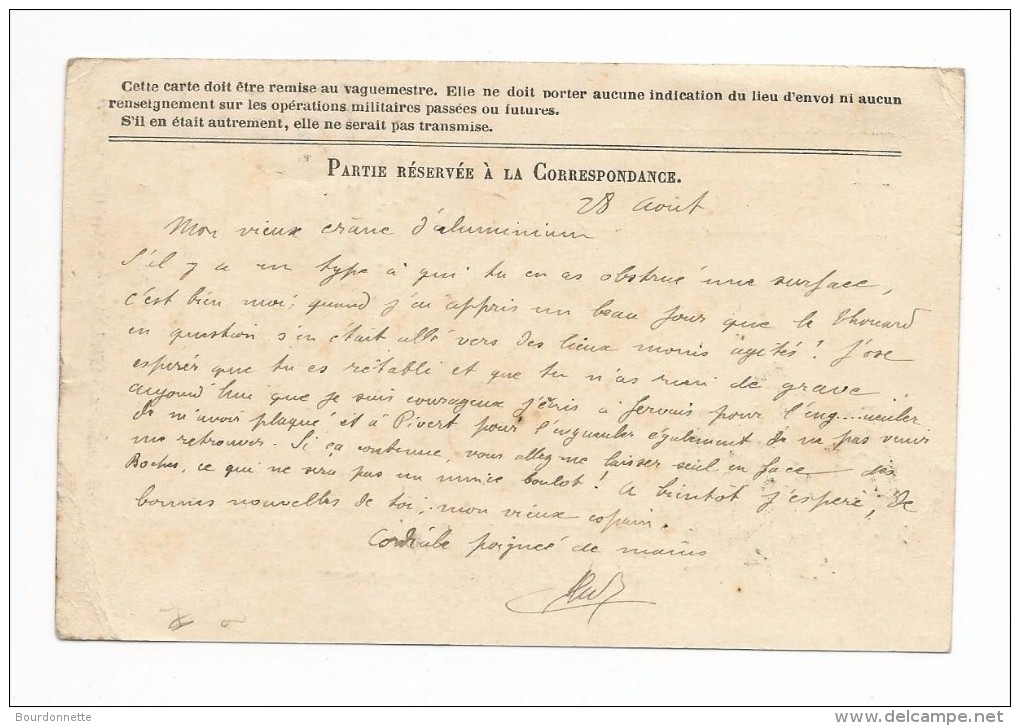 Cette carte doit être remise au vaguemestre. Elle ne doit porter aucune indication du lieu d'envoi ni aucun
renseignement sur les opérations militaires passées ou futures.
S'il en était autrement, elle ne serait pas transmise.
PARTIE RÉSERVÉE À LA CORRESPONDANCE.
28 Août
Mon vieux crâne d'aluminium
S'il y a un type à qui tu en as obstrué une surface,
c'est bien moi ; quand j'ai appris un beau jour que le Thouard
en question s'en était allé vers des lieux moins agités ! J'ose
espérer que tu es rétabli et que tu n'as rien de grave.
Aujourd'hui que je suis courageux j'écris à Gervais pour l'eng...ueuler
de m'avoir plaqué, et à Pivert pour l'engueuler également de ne pas venir
me retrouver. Si ça continue, vous allez me laisser seul en face des
Boches, ce qui ne sera pas un mince boulot ! A bientôt j'espère, de
bonnes nouvelles de toi, mon vieux copain.
Cordiale poignée de mains
Bourdonnette
delcampe.net